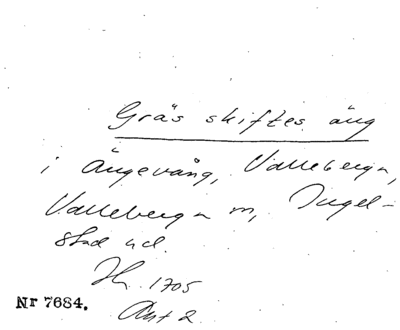 Gräs skiftes äng
i Ängevång, Valleberga,
Valleberga sn, Ingel-
stad hd.
1705
Akt 2
Nr 7684.